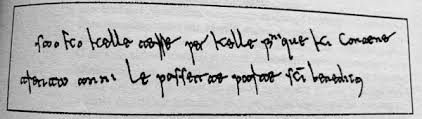 sao kco kelle terre per kelle fini que ki contene
trenta anni le possette parte sci benedicti